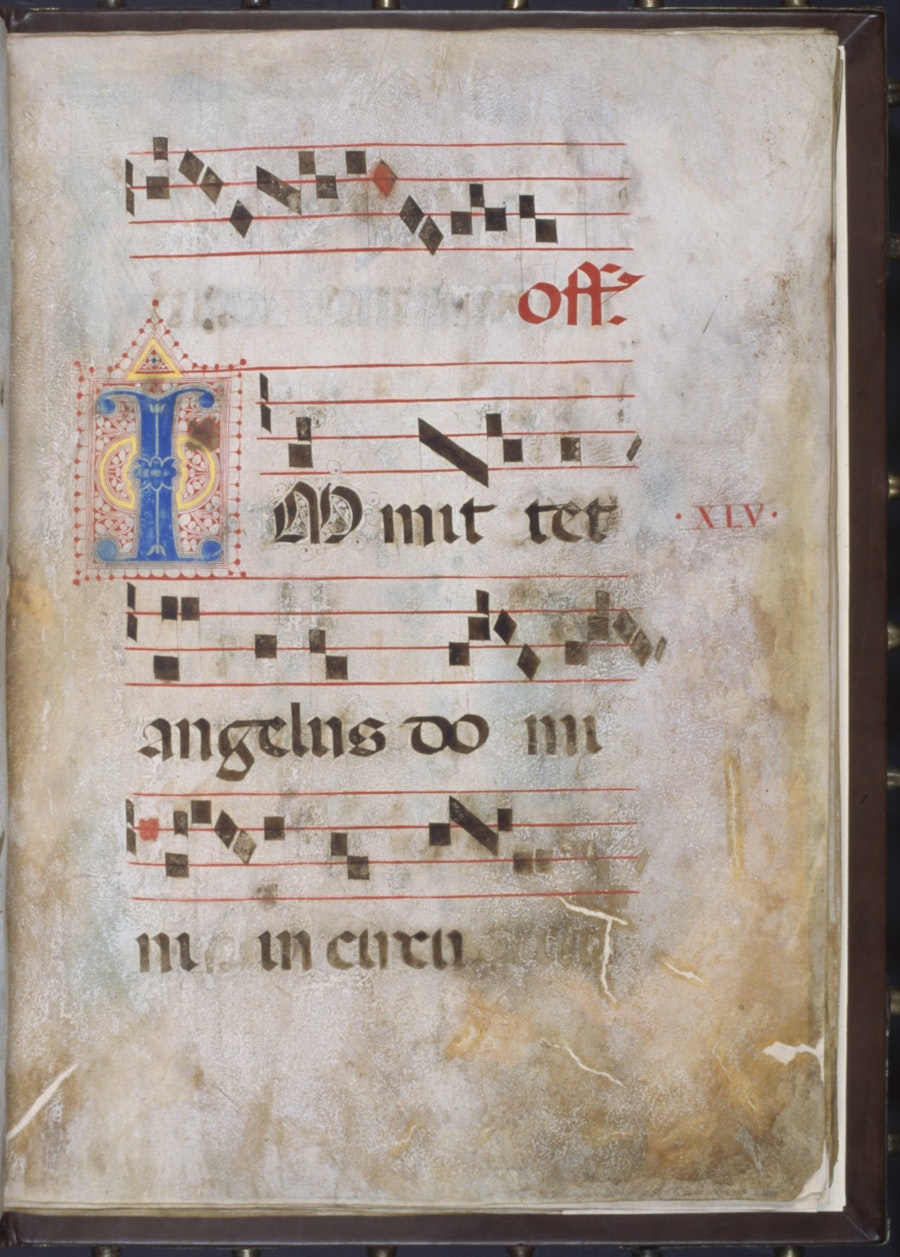 off:
IM mit tet
·XLV·
angelus do mi
ni in circu